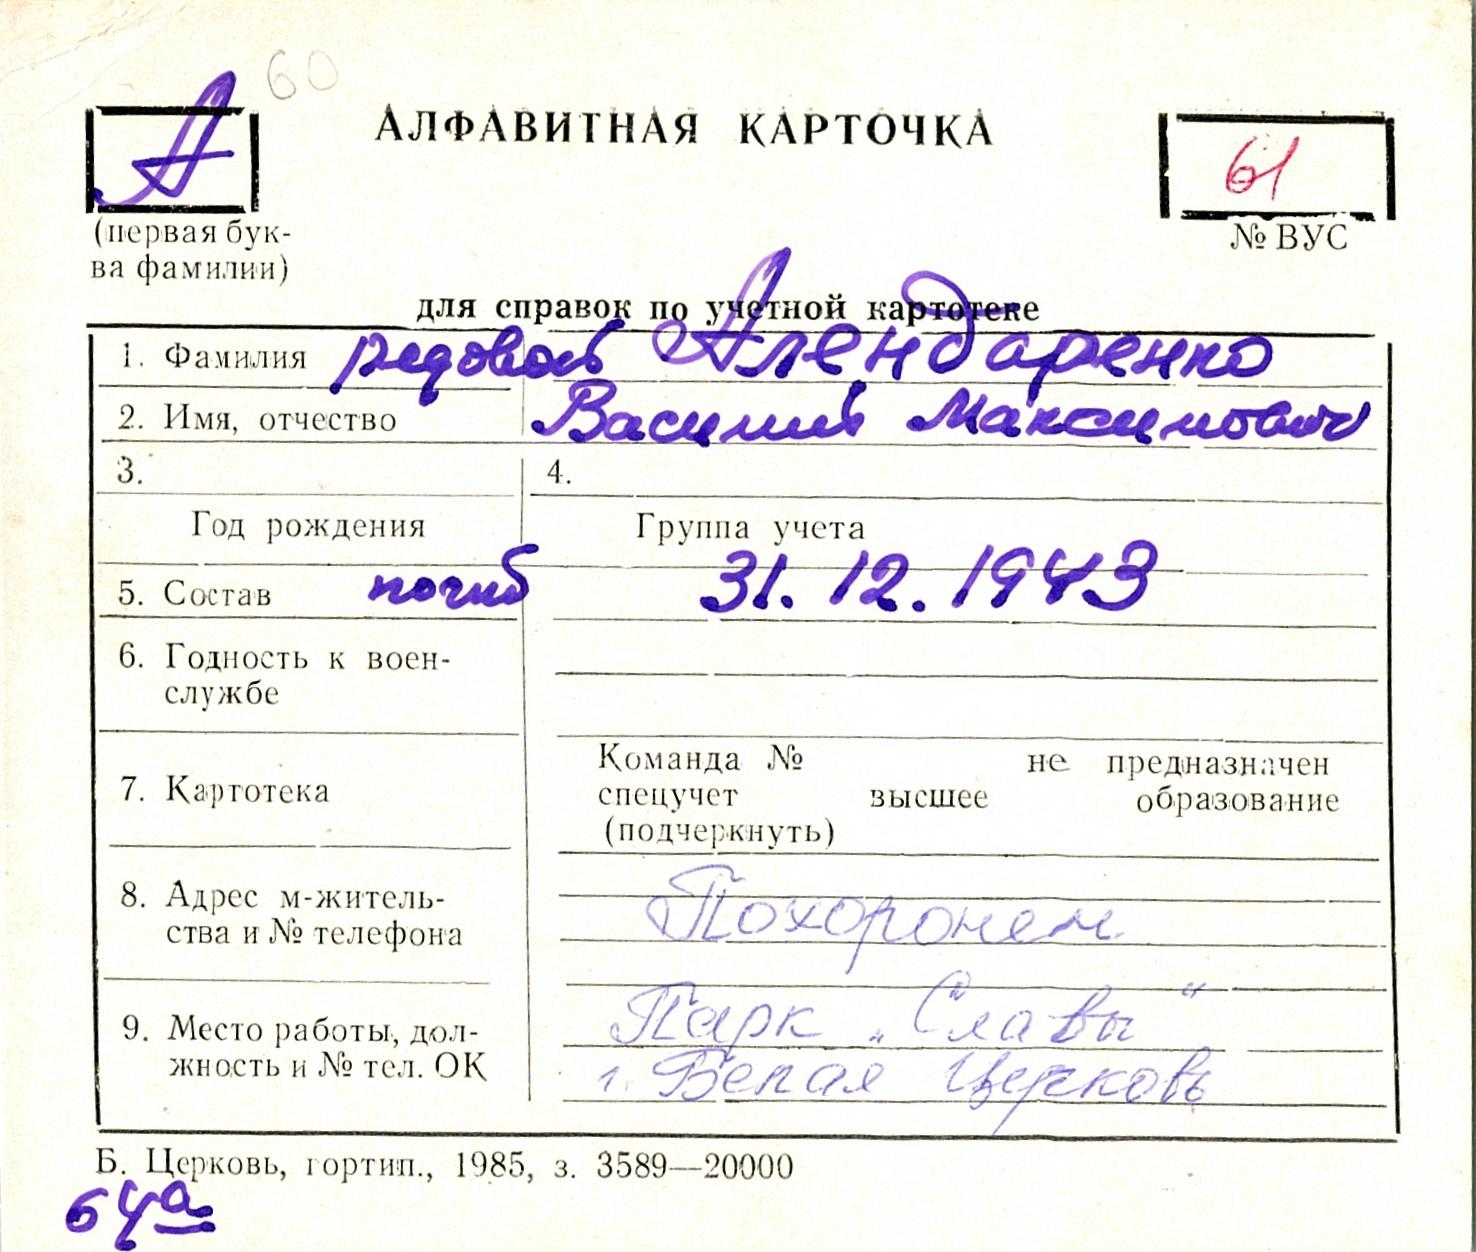 60
А
АЛФАВИТНАЯ КАРТОЧКА
61
(первая бук-
ва фамилии)
№ ВУС
для справок по учетной картотеке
1. Фамилия рядовой Алендаренко
2. Имя, отчество Василий Максимович
3. 4.
Год рождения Группа учета
5. Состав погиб 31.12.1943
6. Годность к воен-
службе
7. Картотека
Команда № не предназначен
спецучет высшее образование
(подчеркнуть)
8. Адрес м-житель-
ства и № телефона
Похоронен
9. Место работы, дол-
жность и № тел. ОК
Парк „Славы"
г. Белая Церковь
Б. Церковь, гортип., 1985, з. 3589—20000
64а